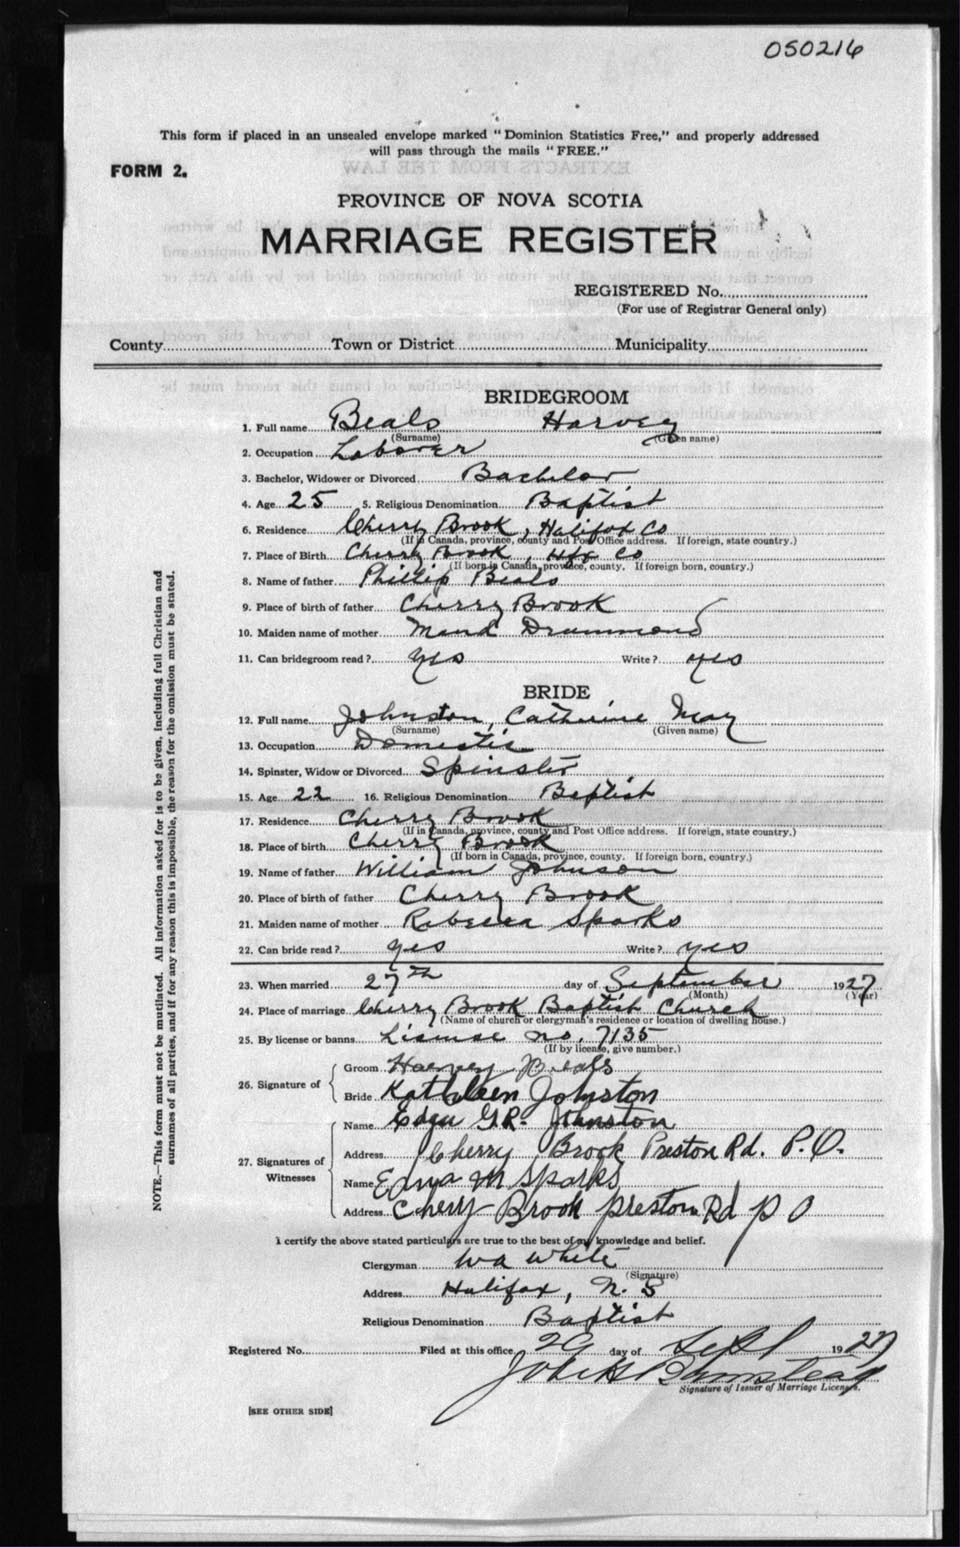 050216
This form if placed in an unsealed envelope marked "Dominion Statistics Free," and properly addressed
will pass through the mails "FREE."
FORM 2.
PROVINCE OF NOVA SCOTIA
MARRIAGE REGISTER
REGISTERED No.
(For use of Registrar General only)
County Town or District Municipality
BRIDEGROOM
1. Full name Beals Harvey
(Surname) (Given name)
2. Occupation Laborer
3. Bachelor, Widower or Divorced Bachelor
4. Age 25 5. Religious Denomination Baptist
6. Residence Cherry Brook, Halifax Co
(If in Canada, province, county and Post Office address. If foreign, state country.)
7. Place of Birth Cherry Brook, Hfx Co
(If born in Canada, province, county. If foreign born, country.)
8. Name of father Phillip Beals
9. Place of birth of father Cherry Brook
10. Maiden name of mother Maud Drummond
11. Can bridegroom read? yes Write? yes
BRIDE
12. Full name Johnston, Catherine May
(Surname) (Given name)
13. Occupation Domestic
14. Spinster, Widow or Divorced Spinster
15. Age 22 16. Religious Denomination Baptist
17. Residence Cherry Brook
(If in Canada, province, county and Post Office address. If foreign, state country.)
18. Place of birth Cherry Brook
(If born in Canada, province, county. If foreign born, country.)
19. Name of father William Johnson
20. Place of birth of father Cherry Brook
21. Maiden name of mother Rebecca Sparks
22. Can bride read? yes Write? yes
23. When married 27th day of September 1927
(Month) (Year)
24. Place of marriage Cherry Brook Baptist Church
(Name of church or clergyman's residence or location of dwelling house.)
25. By license or banns License no. 7135
(If by license, give number.)
26. Signature of
Groom Harvey Beals
Bride Kathleen Johnston
27. Signatures of Witnesses
Name G.R. Johnston
Address Cherry Brook Preston Rd. P.O.
Name Edna M Sparks
Address Cherry Brook preston Rd p O
I certify the above stated particulars are true to the best of my knowledge and belief.
Clergyman Wa White
(Signature)
Address Halifax, N. S
Religious Denomination Baptist
Registered No. Filed at this office 29 day of Sept 1927
Signature of Issuer of Marriage Licenses.
[SEE OTHER SIDE]
NOTE.—This form must not be mutilated. All information asked for is to be given, including full Christian and
surnames of all parties, and if for any reason this is impossible, the reason for the omission must be stated.